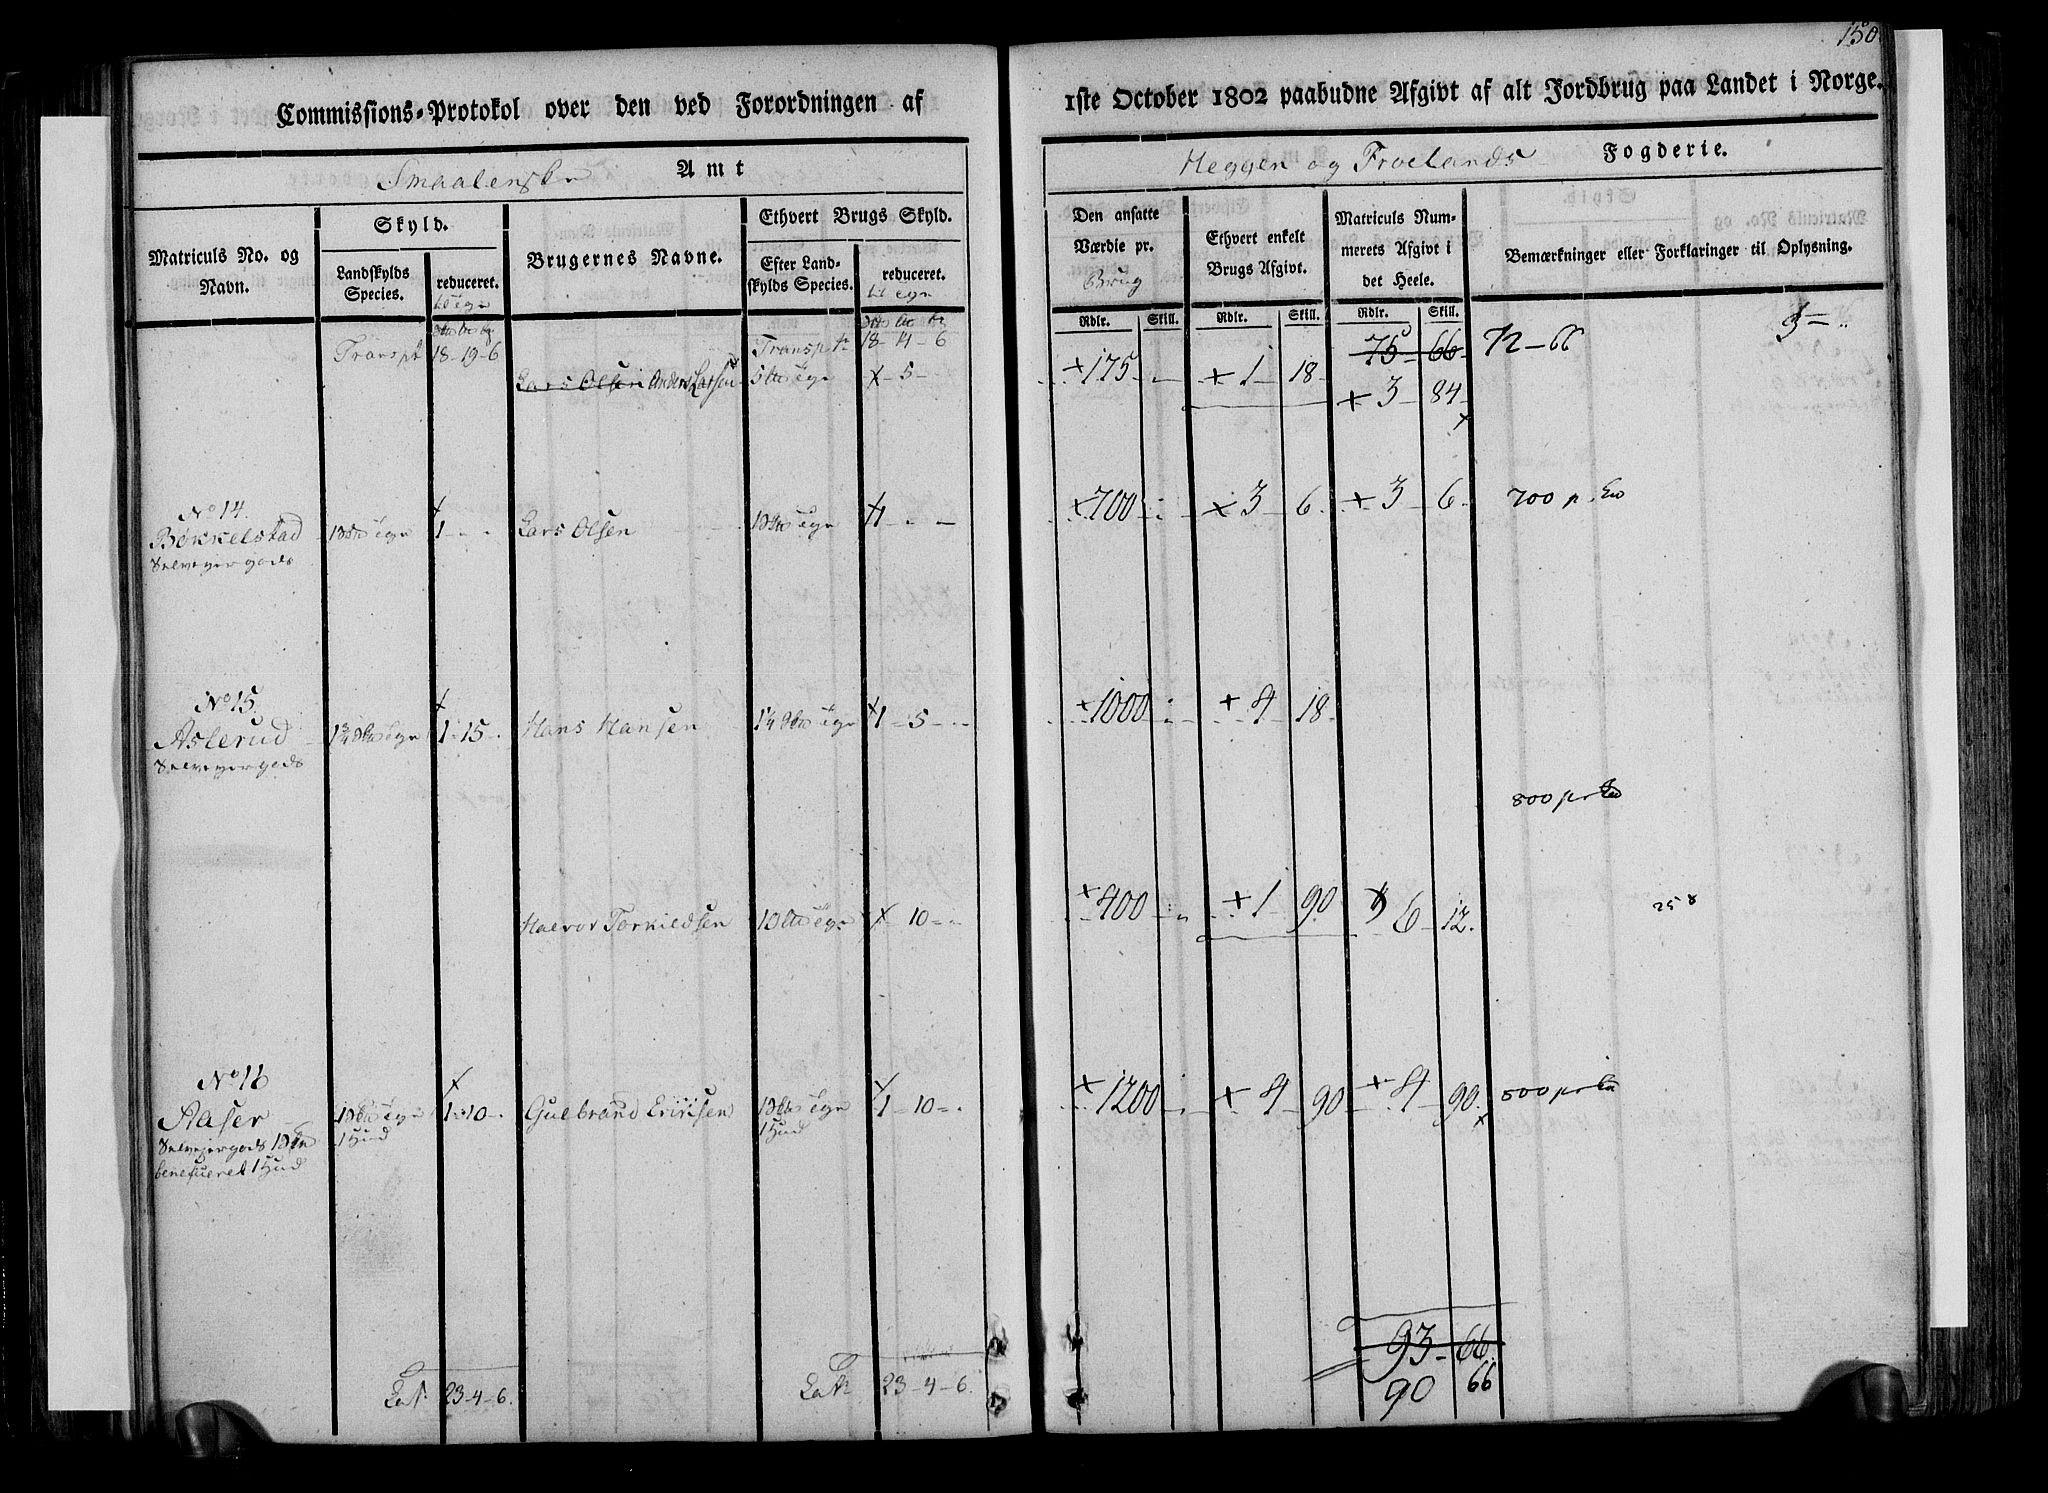 150
Commissions-Protokol over den ved Forordningen af
1ste October 1802 paabudne Afgivt af alt Jordbrug paa Landet i Norge.
Smaalenske Amt
Heggen og Froelands Fogderie.
Matriculs No. og Navn.
Skyld.
Landskylds Species.
reduceret.
til Tÿgn
Brugernes Navne.
Ethvert Brugs Skyld.
Efter Landskylds Species.
reduceret.
til Tÿgn
Den ansatte Værdie pr. Brug
Ethvert enkelt Brugs Afgivt.
Matriculs Nummerets Afgivt i det Heele.
Bemærkninger eller Forklaringer til Oplysning.
Rdlr. Skill. Rdlr. Skill. Rdlr. Skill.
Transpt 18-19-6 Transpt 18-14-6 75-66- 72-66
Lars Olsen Anders Larsen 5 - 5 - 175 1 18 3 84
No 14.
Bøkkelstad 1 Lars Olsen 1 700 3 6 3 6 700 p.
Selveyergods
No 15.
Asterud 1¾ 1-15 Hans Hansen 1¼ 1-5 1000 4 18
Selveyergods
800 pr
Halvor Torkildsen 10 10 400 1 90 6 12. 25
No 16
Aaser 1 1-10 Gulbrand Erichsen 1 1-10 1200 4 90 4 90 800 pr
1 Hud 1 Hud
Selveyergods
beneficeret 1 Hud
93-66
Lat. 23-4-6. Lat. 23-4-6. 90 66